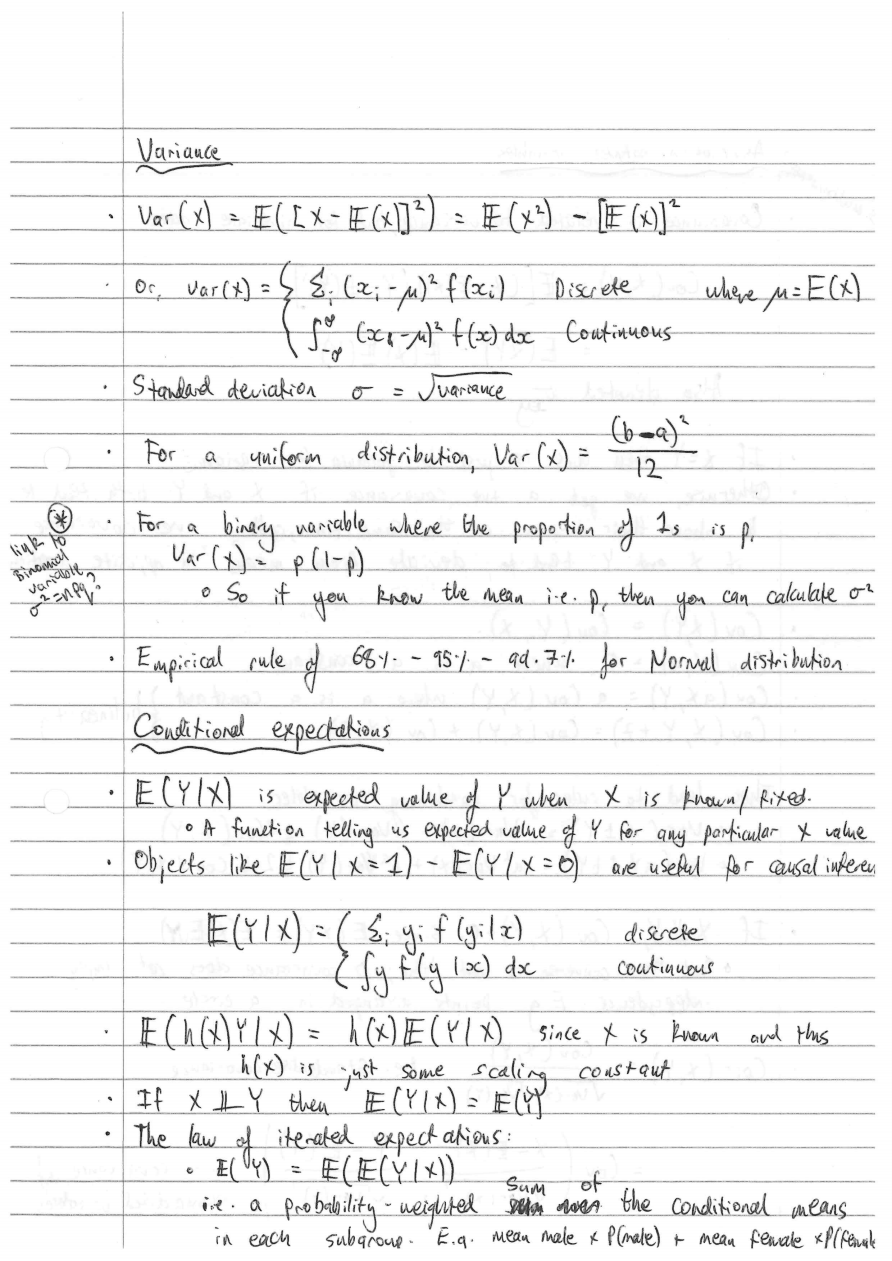 Variance
· Var(X) = 𝔼([X - 𝔼(X)]²) = 𝔼(X²) - [𝔼(X)]²
· Or, Var(X) = { Σᵢ (xᵢ - μ)² f(xᵢ) Discrete where μ = E(X)
{ ∫_{-∞}^{∞} (x - μ)² f(x) dx Continuous
· Standard deviation σ = √variance
· For a uniform distribution, Var(X) = (b-a)² / 12
· For a binary variable where the proportion of 1s is p,
Var(X) = p(1-p)
∘ So if you know the mean i.e. p, then you can calculate σ²
⊛
link to
Binomial
variable
σ² = npq?
· Empirical rule of 68% - 95% - 99.7% for Normal distribution
Conditional expectations
· 𝔼(Y|X) is expected value of Y when X is known/fixed.
∘ A function telling us expected value of Y for any particular X value
· Objects like 𝔼(Y|X=1) - 𝔼(Y|X=0) are useful for causal inferen
𝔼(Y|X) = { Σᵢ yᵢ f(yᵢ|x) discrete
{ ∫y f(y|x) dx continuous
· 𝔼(h(X)Y|X) = h(X)𝔼(Y|X) since X is known and thus
h(X) is just some scaling constant
· If X ⫫ Y then 𝔼(Y|X) = 𝔼(Y)
· The law of iterated expectations:
∘ 𝔼(Y) = 𝔼(𝔼(Y|X))
i.e. a probability-weighted sum of the conditional means
in each subgroup. E.g. mean male x P(male) + mean female x P(female